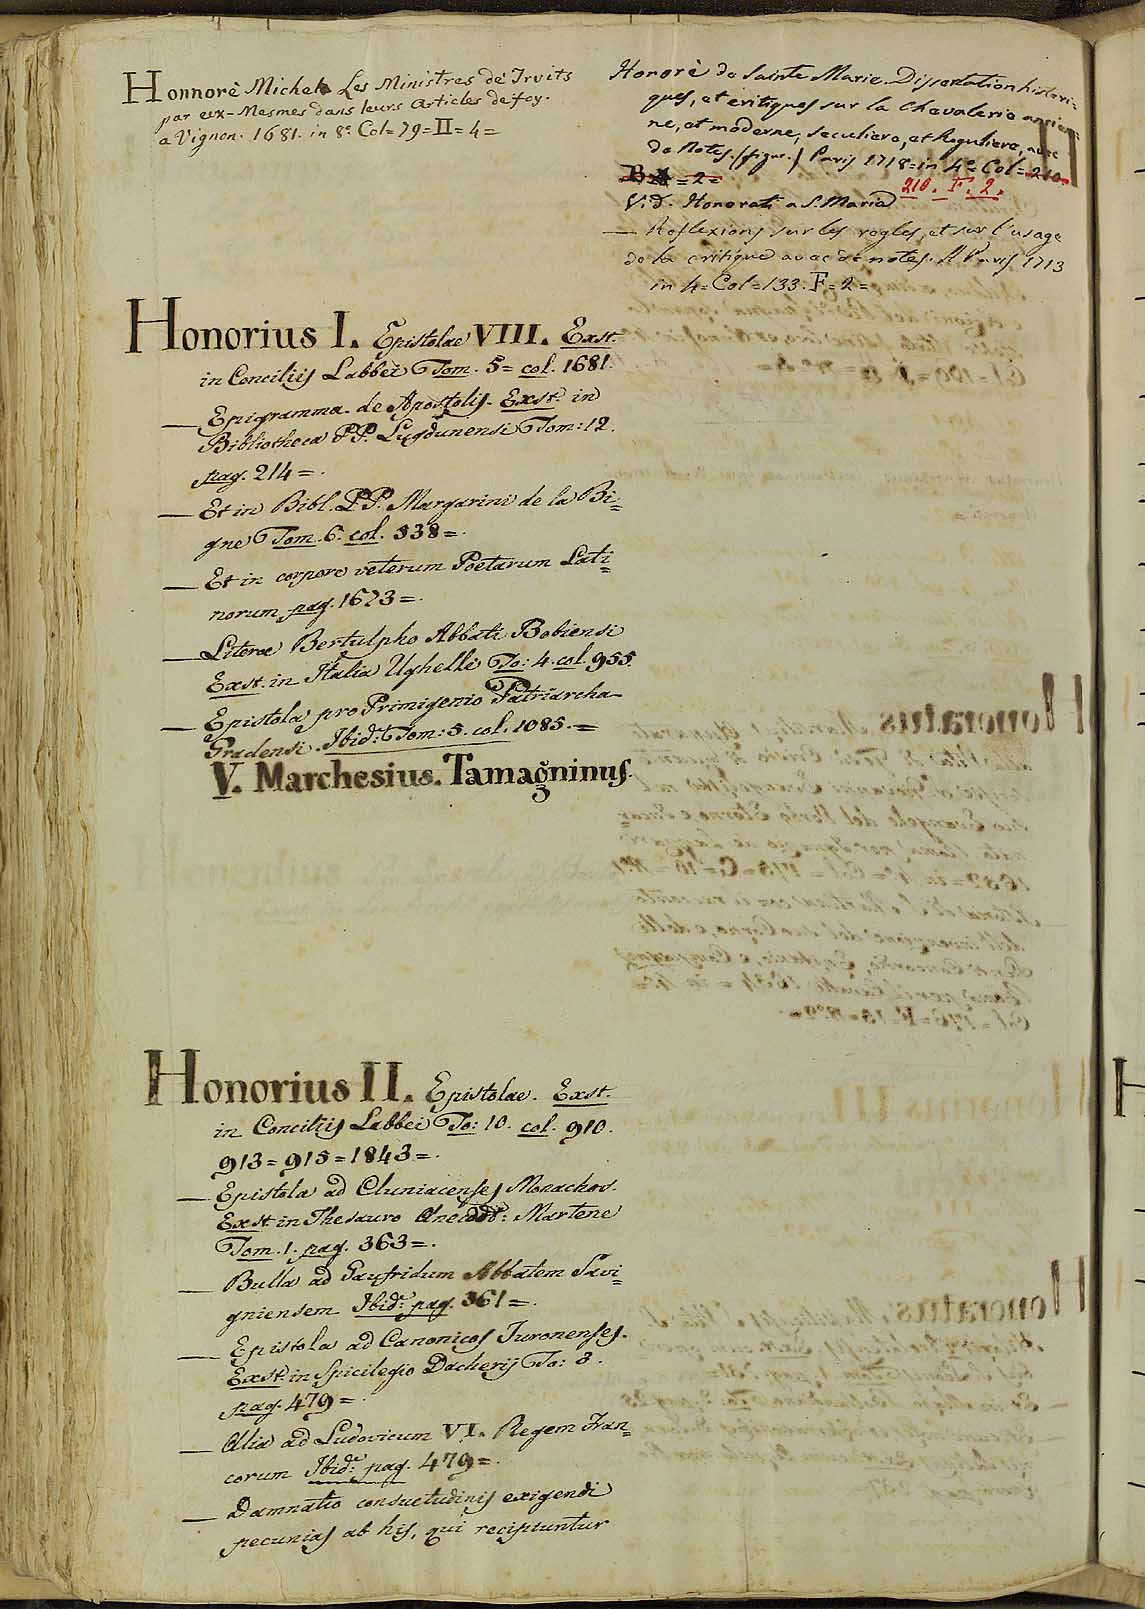 Honnorè Michel Les Ministres de Truits
par eux-Mesmes dans leurs Articles de foy.
a Vignon. 1681. in 8º Col=79=II=4=
Honorè de Sainte Marie. Dissertation histori=
ques, et critiques sur la Chevalerie ancien=
ne, et moderne, seculiere, et Reguliere, avec
de Notes. (figur.) Paris 1718=in 4º Col=210=
=2=
210. F. 2.
V.d. Honorati a S. Maria
— Reflexions sur les regles, et sur l'usage
de la critique avec de notes. A Paris 1713
in 4= Col=133. F=2=
Honorius I. Epistolae VIII. Exst.
in Concilijs Labbei Tom. 5= col. 1681.
— Epigramma de Apostolis. Exst. in
Bibliotheca PP. Lugdunensi Tom: 12.
pag. 214=.
— Et in Bibl. PP. Margarini de la Bi=
gne Tom. 6. col. 538=.
— Et in corpore veterum Poetarum Lati=
norum pag. 1673=.
— Literae Bertulpho Abbati Bobiensi
Exst. in Italia Ughelli To: 4. col. 955.
— Epistola pro Primigenio Patriarcha
Gradensi. Ibid: Tom: 5. col. 1085.=
V. Marchesius. Tamagninus.
Honorius II. Epistolae. Exst.
in Concilijs Labbei To: 10. col. 910.
913=915=1843=.
— Epistola ad Cluniacenses Monachos.
Exst. in Thesauro Anecdot: Martene
Tom. 1. pag. 363=.
— Bulla ad Gaufridum Abbatem Savi=
gniensem Ibidē: pag. 361=.
— Epistola ad Canonicos Turonenses.
Exst. in Spicilegio Dacherij To: 3.
pag. 479=.
— Alia ad Ludovicum VI. Regem Fran=
corum Ibidē: pag. 479=.
— Damnatio consuetudinis exigendi
pecunias ab his, qui recipiuntur